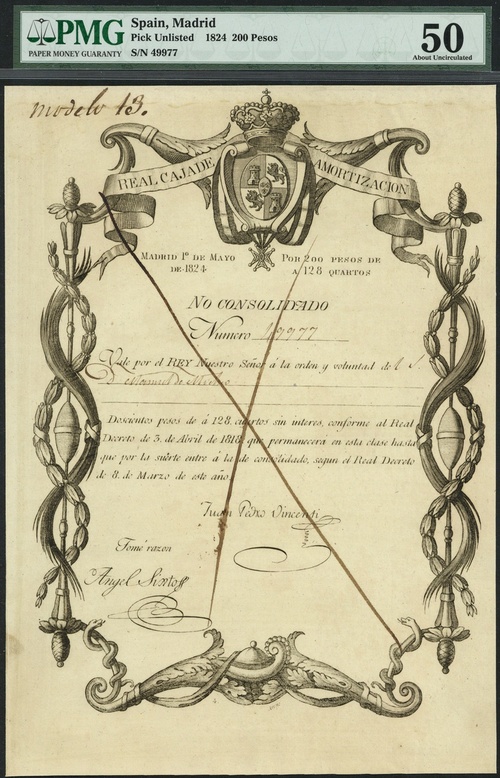 PMG
PAPER MONEY GUARANTY
Spain, Madrid
Pick Unlisted 1824 200 Pesos
S/N 49977
50
About Uncirculated
modelo 13.
REAL CAJA DE AMORTIZACION
MADRID 1º DE MAYO DE 1824
POR 200 PESOS DE A 128 QUARTOS
NO CONSOLIDADO
Numero 49977
Vale por el REY Nuestro Señor á la orden y voluntad del S.
D. Manuel de
Doscientos pesos de á 128 cuartos sin interes, conforme al Real
Decreto de 5. de Abril de 1818, que permanecerá en esta clase hasta
que por la suërte entre á la de consolidado, segun el Real Decreto
de 8. de Marzo de este año.
Juan Pedro Vincenti
Tomé razon
Angel Sixto